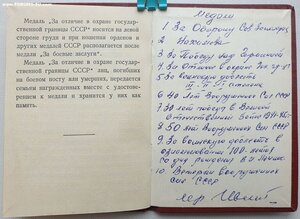 Медаль „За отличие в охране государственной границы СССР“ носится на левой стороне груди и при ношении орденов и других медалей СССР располагается после медали „За боевые заслуги“.
Медаль „За отличие в охране государственной границы СССР“ лиц, погибших на боевом посту или умерших, передается семьям награжденных вместе с удостоверением к медали и хранится у них как память.
Медали
1. За Оборону Сов Заполярья
2. Нахимова
3. За Победу над Германией
4. За Отличие в охране гос. гр-цы
5. За воинскую доблесть
6. 40 лет Вооружённых Сил СССР
7. 30 лет победы в Великой Отечественной
8. 50 лет Вооружённых Сил СССР
9. За воинскую доблесть в ознаменование 100-летия со дня рождения В И Ленина
10. Ветеран Вооружённых Сил СССР